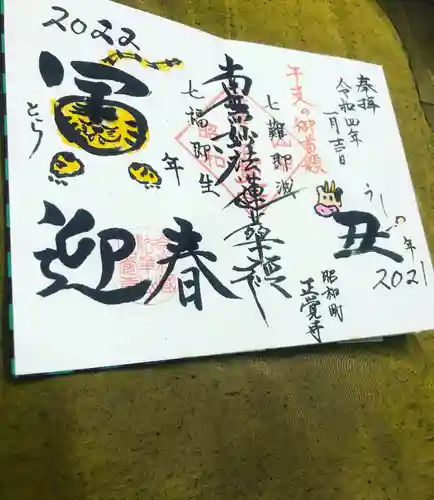 奉拝
令和四年
一月吉日
干支の御首題
うし
丑
年
2021
昭和町
正覚寺
七難即滅
南無妙法蓮華経
七福即生
2022
とら
寅
年
迎春